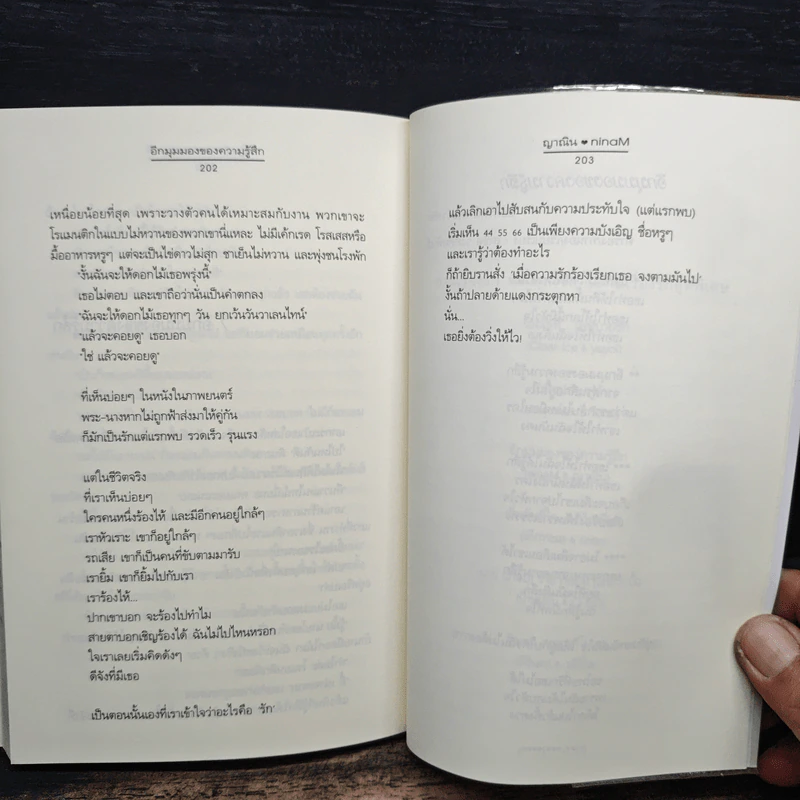 อีกมุมมองของความรู้สึก
202
เหนื่อยน้อยที่สุด เพราะวางตัวคนได้เหมาะสมกับงาน พวกเขาจะ
โรแมนติกในแบบไม่หวานของพวกเขานี่แหละ ไม่มีเค้กเรด โรสเสสหรือ
มื้ออาหารหรูๆ แต่จะเป็นไข่ดาวไม่สุก ชาเย็นไม่หวาน และพุ่งชนโรงพัก
'งั้นฉันจะให้ดอกไม้เธอพรุ่งนี้'
เธอไม่ตอบ และเขาถือว่านั่นเป็นคำตกลง
'ฉันจะให้ดอกไม้เธอทุกๆ วัน ยกเว้นวันวาเลนไทน์'
'แล้วจะคอยดู' เธอบอก
'ใช่ แล้วจะคอยดู'
ที่เห็นบ่อยๆ ในหนังในภาพยนตร์
พระ-นางหากไม่ถูกฟ้าส่งมาให้คู่กัน
ก็มักเป็นรักแต่แรกพบ รวดเร็ว รุนแรง
แต่ในชีวิตจริง
ที่เราเห็นบ่อยๆ
ใครคนหนึ่งร้องไห้ และมีอีกคนอยู่ใกล้ๆ
เราหัวเราะ เขาก็อยู่ใกล้ๆ
รถเสีย เขาก็เป็นคนที่ขับตามมารับ
เรายิ้ม เขาก็ยิ้มไปกับเรา
เราร้องไห้...
ปากเขาบอก จะร้องไปทำไม
สายตาบอกเชิญร้องได้ ฉันไม่ไปไหนหรอก
ใจเราเลยเริ่มคิดดังๆ
ดีจังที่มีเธอ
เป็นตอนนั้นเองที่เราเข้าใจว่าอะไรคือ 'รัก'
ญาณิน ❤ ninaM
203
แล้วเลิกเอาไปสับสนกับความประทับใจ (แต่แรกพบ)
เริ่มเห็น 44 55 66 เป็นเพียงความบังเอิญ ชื่อหรูๆ
และเรารู้ว่าต้องทำอะไร
ก็ถ้ายิบรานสั่ง 'เมื่อความรักร้องเรียกเธอ จงตามมันไป'
งั้นถ้าปลายด้ายแดงกระตุกหา
นั่น...
เธอยิ่งต้องวิ่งให้ไว!